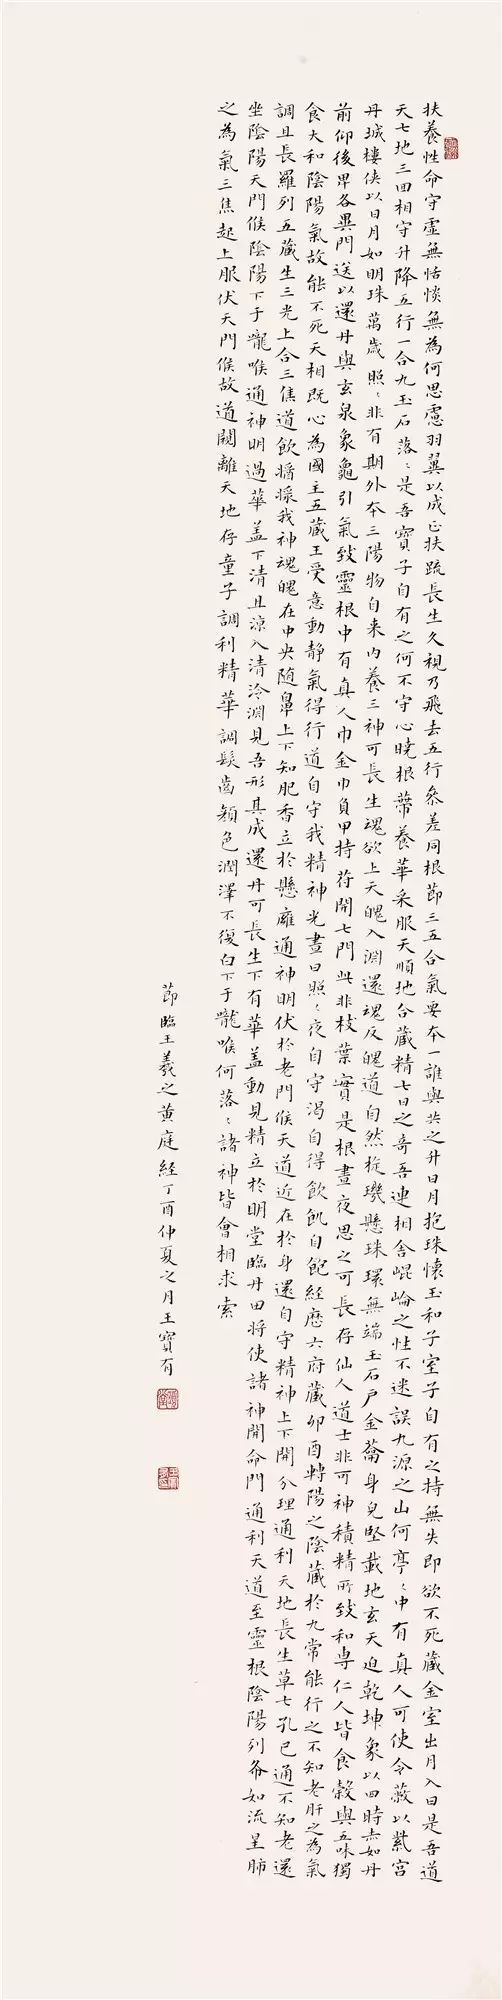 扶養性命守虛無恬惔無為何思慮羽翼以成正扶疏長生久視乃飛去五行參差同根節三五合氣要本一誰與共之升日月抱珠懷玉和子室子自有之持無失即欲不死藏金室出月入日是吾道
天七地三回相守升降五行一合九玉石落〻是吾寶子自有之何不守心曉根蒂養華采服天順地合藏精七日之奇吾連相舍崐崘之性不迷誤九源之山何亭〻中有真人可使令蔽以紫宮
丹城樓俠以日月如明珠萬歲照〻非有期外本三陽物自来內養三神可長生魂欲上天魄入淵還魂反魄道自然㨁璣懸珠環無端玉石戶金籥身皃堅載地玄天迫乾坤象以四時赤如丹
前仰後卑各異門送以還丹與玄泉象龜引氣致靈根中有真人巾金巾負甲持苻開七門此非枝葉實是根晝夜思之可長存仙人道士非可神積精所致和専仁人皆食穀與五味獨
食大和陰陽氣故能不死天相既心為國主五藏王受意動靜氣得行道自守我精神光晝日照〻夜自守渴自得飲飢自飽經歷六府藏卯酉轉陽之陰藏於九常能行之不知老肝之為氣
調且長羅列五藏生三光上合三焦道飲醬㵂我神魂魄在中央随鼻上下知肥香立於懸廱通神明伏於老門候天道近在於身還自守精神上下開分理通利天地長生草七孔已通不知老還
坐陰陽天門候陰陽下于嚨喉通神明過華盖下清且涼入清泠淵見吾形其成還丹可長生下有華盖動見精立於明堂臨丹田将使諸神開命門通利天道至靈根陰陽列布如流星肺
之為氣三焦起上服伏天門候故道闚離天地存童子調利精華調髮齒顏色潤澤不復白下于嚨喉何落〻諸神皆會相求索
節臨王羲之黄庭經丁酉仲夏之月王寶有